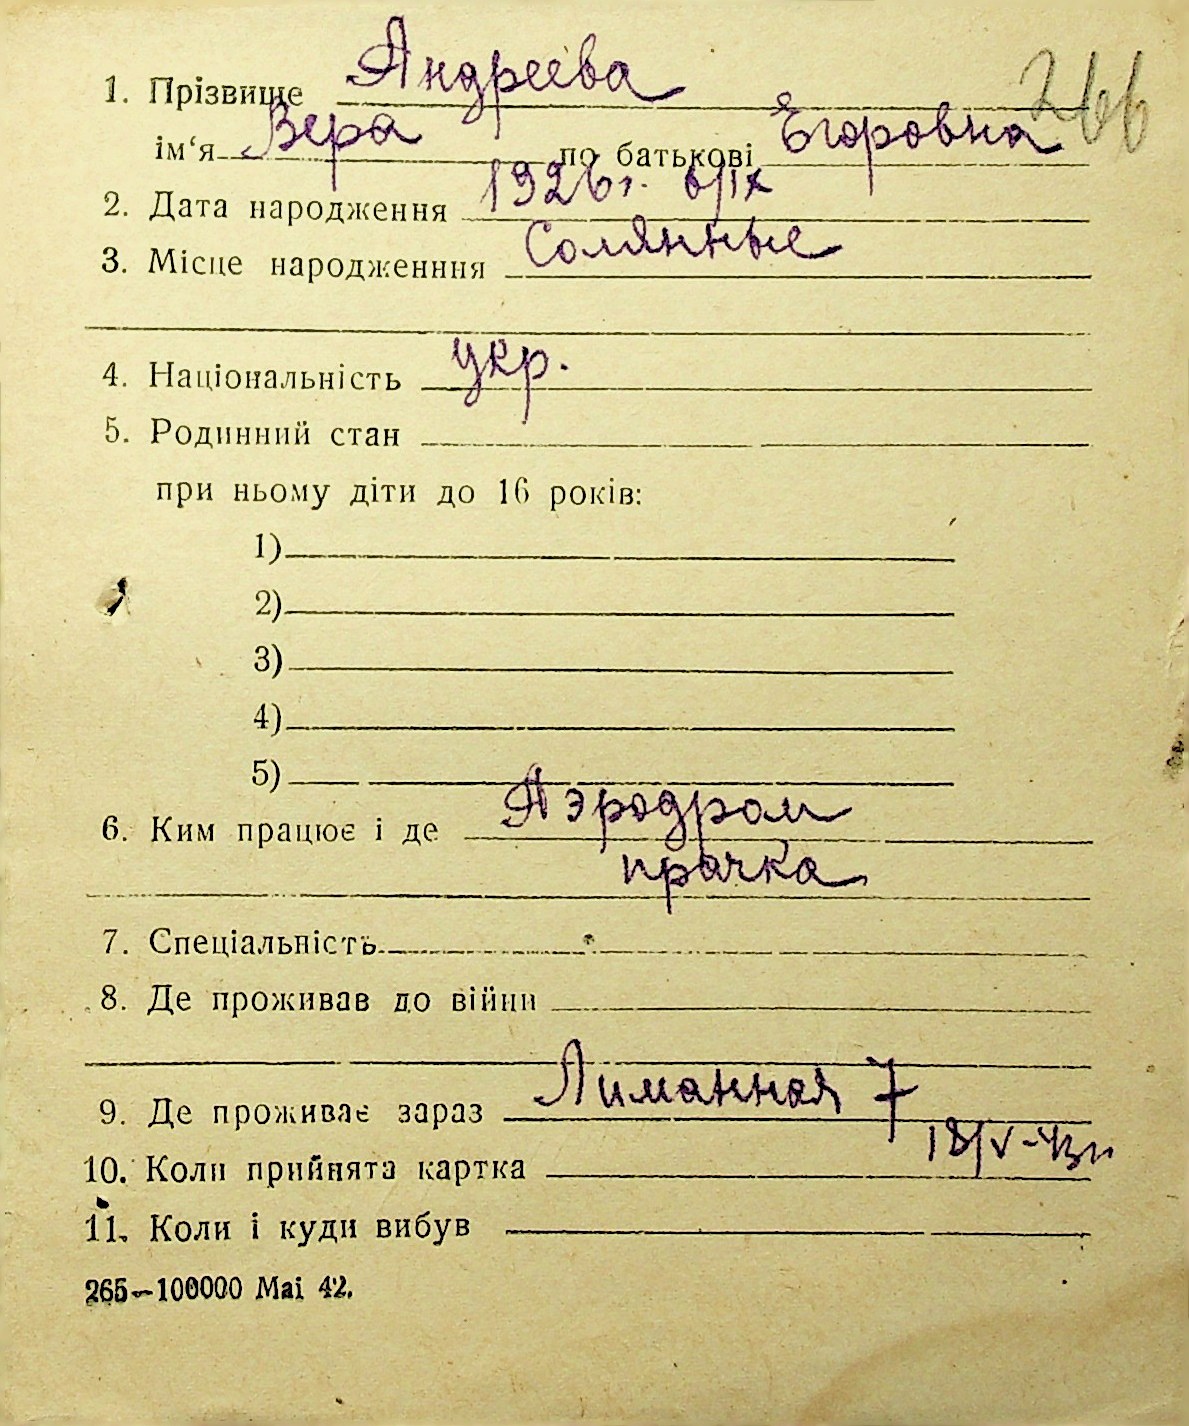 266
1. Прізвище Андреева
ім‘я Вера по батькові Егоровна
2. Дата народження 1926 г. 6/IX
3. Місце народженння Солянные
4. Національність укр.
5. Родинний стан
при ньому діти до 16 років:
1)
2)
3)
4)
5)
6. Ким працює і де Аэродром
прачка
7. Спеціальність
8. Де проживав до війни
9. Де проживає зараз Лиманная 7
10. Коли прийнята картка 18/V-43г.
11. Коли і куди вибув
265—100000 Mai 42.